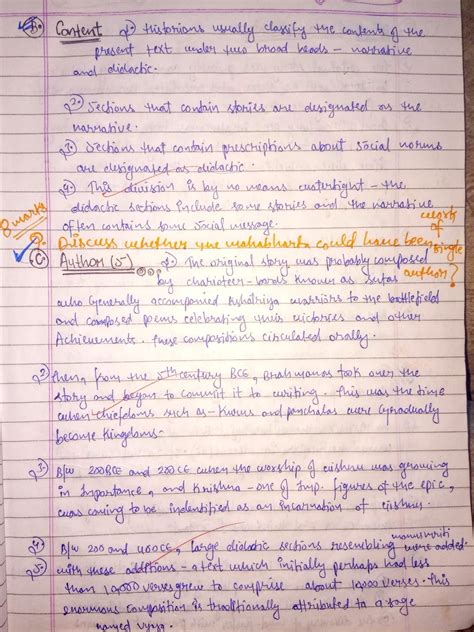 Content 1. Historians usually classify the contents of the
present text under two broad heads - narrative
and didactic.
2. Sections that contain stories are designated as the
narrative.
3. Sections that contain prescriptions about social norms
are designated as didactic.
4. This division is by no means watertight - the
didactic sections include some stories and the narrative
often contains some social message.
8 marks
Q. Discuss whether the mahabharta could have been work of single author?
C. Author (s) 1. The original story was probably composed
by charioteer-bards known as sutas
who Generally accompanied Kshatriya warriors to the battlefield
and composed poems celebrating their victories and other
Achievements. These compositions circulated orally.
2. Then, from the 5th century BCE, Brahmanas took over the
story and began to commit it to writing. This was the time
when chiefdoms such as - Kurus and panchalas were Gradually
become Kingdoms.
3. B/w 200BCE and 200CE when the worship of vishnu was growing
in Importance, and Krishna - one of Imp. figures of the epic,
was coming to be indentified as an incarnation of vishnu.
4. B/w 200 and 400CE, large didatic sections resembling manusmriti were added.
5. with these additions - a text which initially perhaps had less
than 10,000 verses grew to comprise about 10,000 verses. This
enormous composition is traditionally attributed to a sage
named vyas.